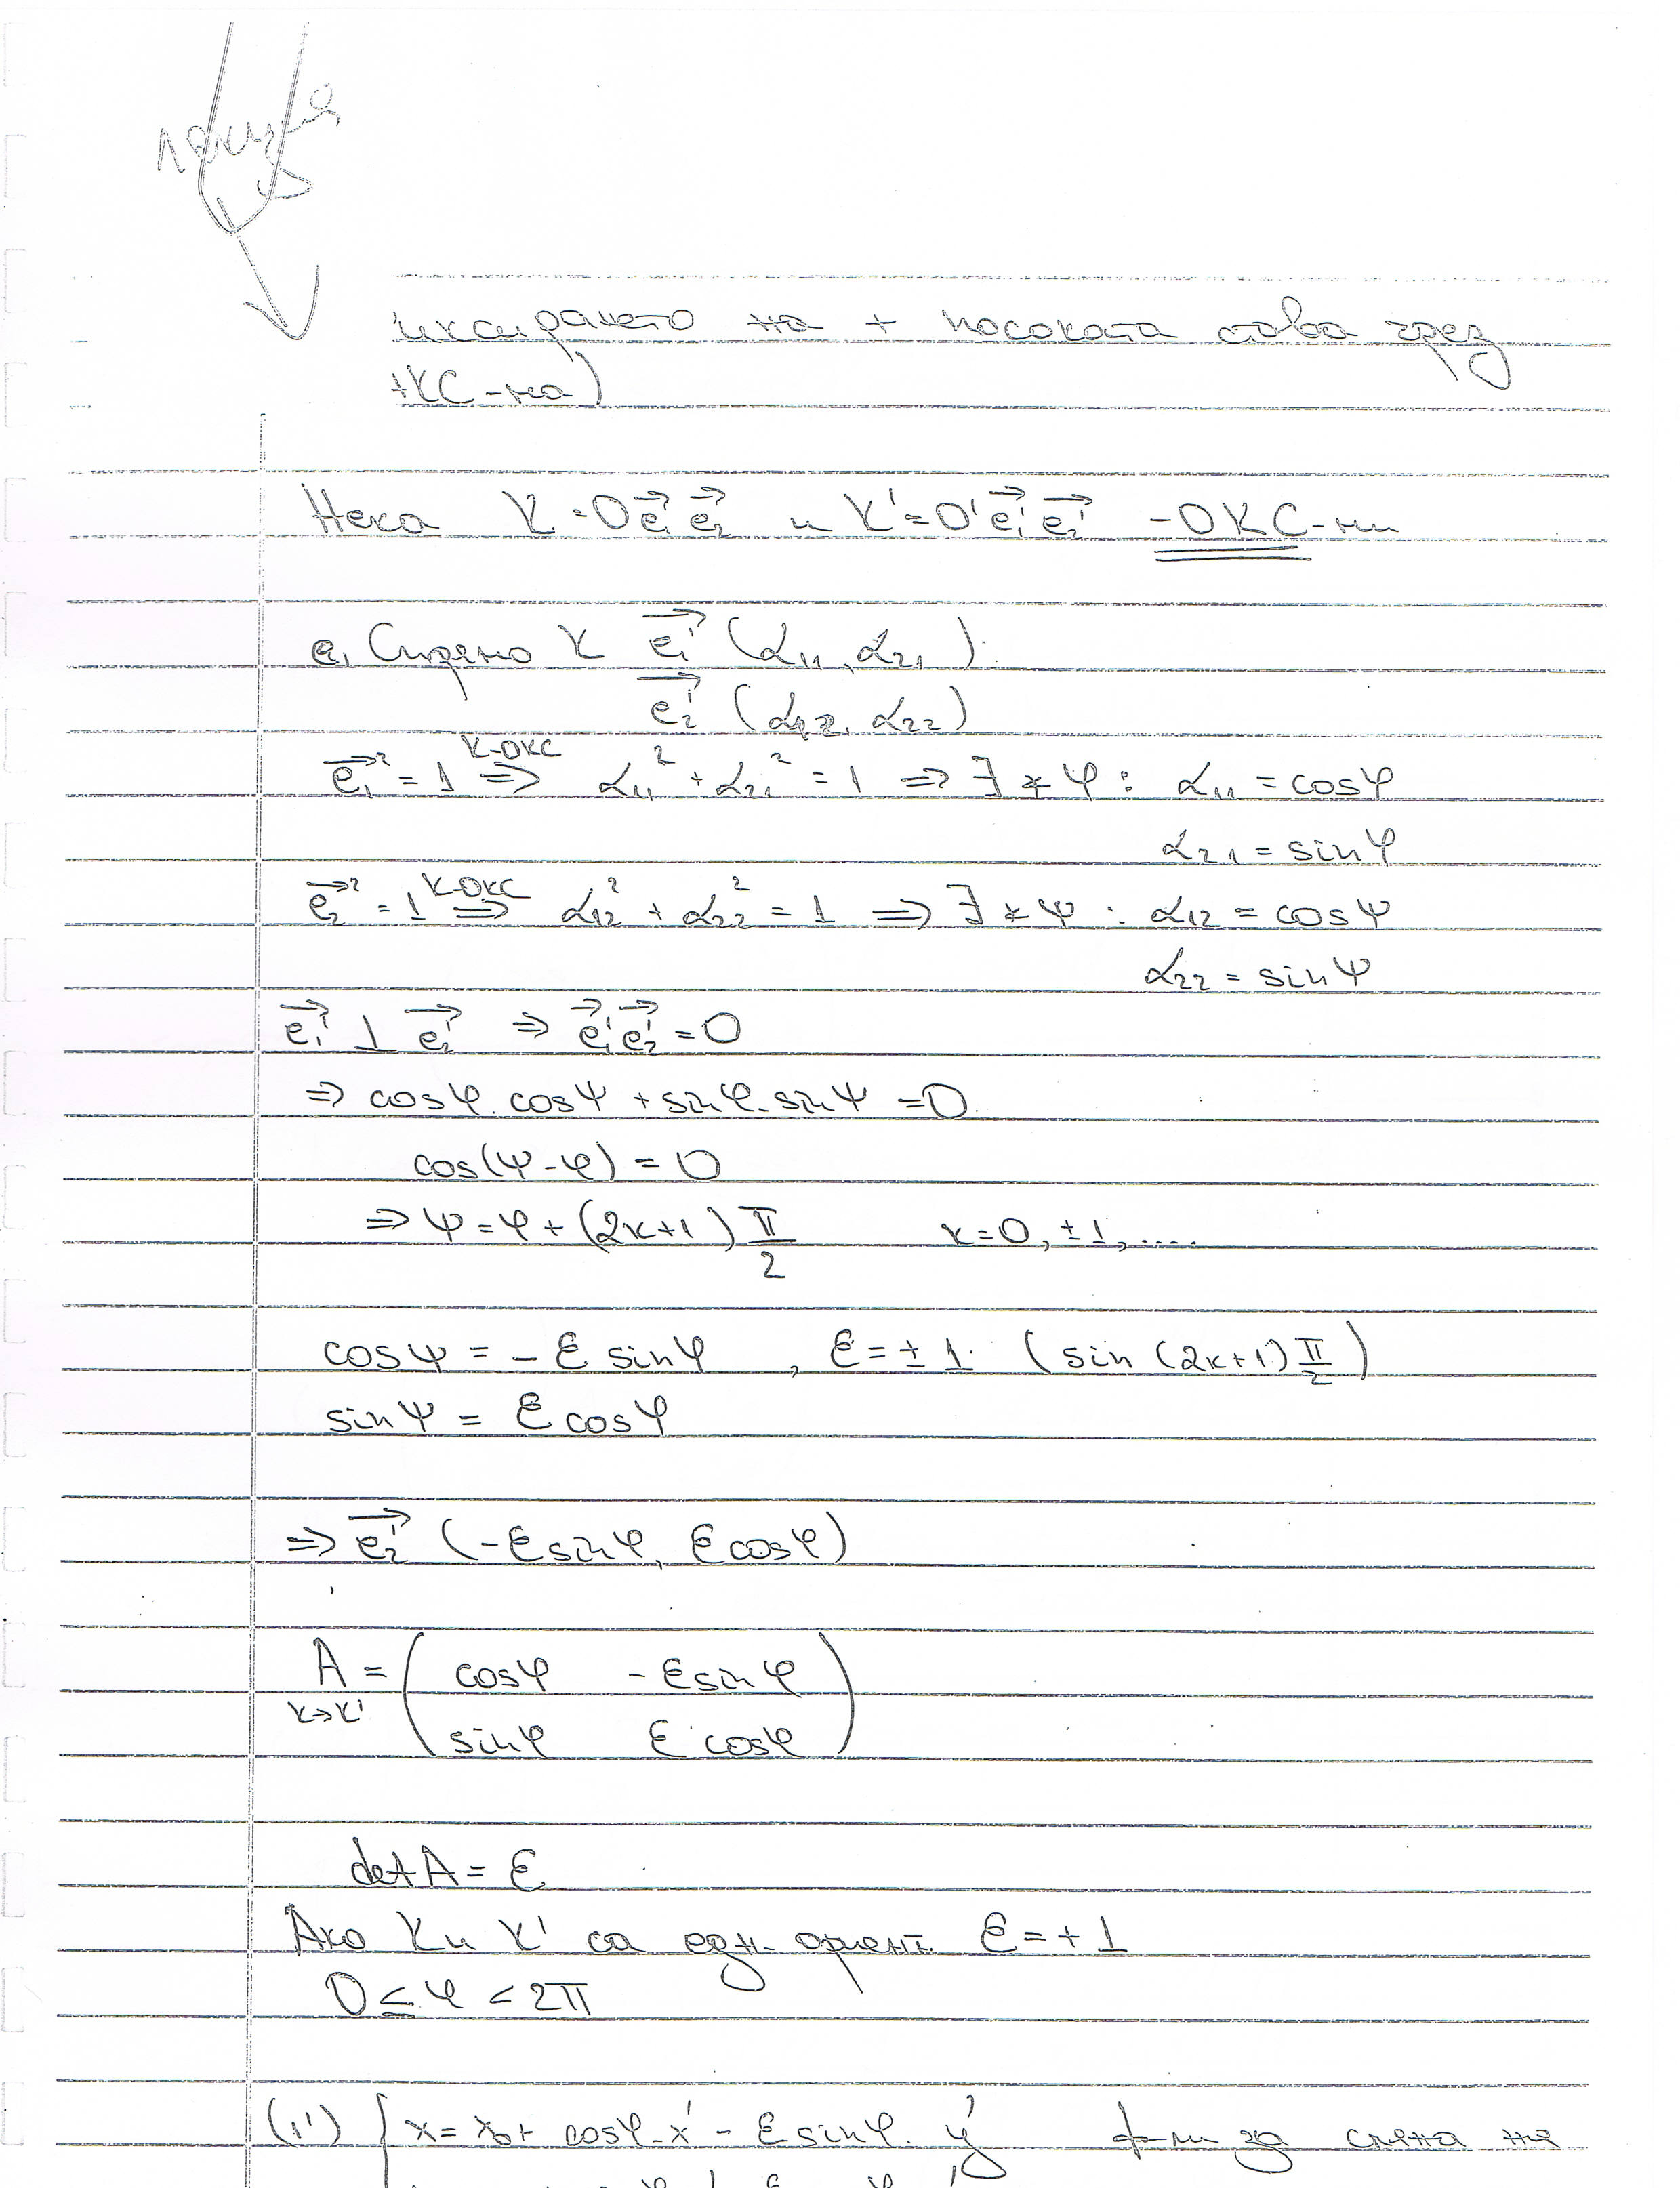 иксирането на + посоката става чрез
+КС-ма)
Нека K=O\vec{e_1}\vec{e_2} и K'=O'\vec{e_1'}\vec{e_2'} -ОКС-ми
Спрямо K \vec{e_1'} (α₁₁, α₂₁).
\vec{e_2'} (α₁₂, α₂₂)
\vec{e_1}² = 1 ⇒ (K-ОКС) α₁₁² + α₂₁² = 1 ⇒ ∃ ∗ φ : α₁₁ = cosφ
α₂₁ = sinφ
\vec{e_2}² = 1 ⇒ (K-ОКС) α₁₂² + α₂₂² = 1 ⇒ ∃ ∗ ψ : α₁₂ = cosψ
α₂₂ = sinψ
\vec{e_1'} ⊥ \vec{e_2'} ⇒ \vec{e_1'}\vec{e_2'} = 0
⇒ cosφ.cosψ + sinφ.sinψ = 0
cos(ψ-φ) = 0
⇒ ψ = φ + (2k+1) π/2 k=0, ±1, ....
cosψ = - ε sinφ , ε = ± 1. (sin (2k+1) π/2)
sinψ = ε cosφ
⇒ \vec{e_2'} (-ε sinφ, ε cosφ)
A = ( cosφ -ε sinφ
K→K' sinφ ε cosφ )
detA = ε
Ако K и K' са едн. ориент. ε = +1
0 ≤ φ < 2π
(1') { x = x₀ + cosφ.x' - ε sinφ. y' ф-ли за смяна на